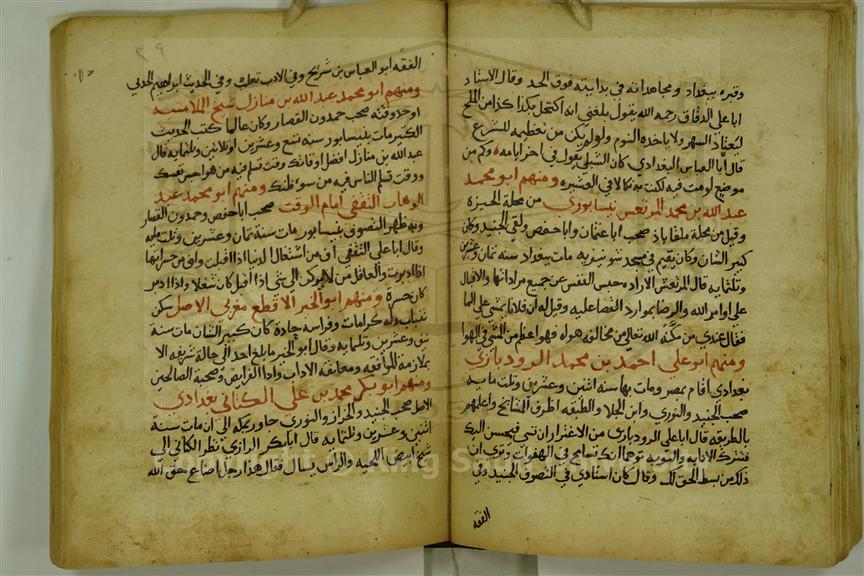 وقبره ببغداد ومجاهداته في بدايته فوق الحد وقال الاستاد
ابا علي الدقاق رحمه الله يقول بلغني انه اكتحل بكذا كذا من الملح
ليعتاد السهر ولا ياخذه النوم ولو لم يكن من تعظيمه للشرع
قال ابا العباس البغدادي كان الشبلي يقول في اخر ايامه وكم من
موضع لومت فيه لكنت به نكالا في العشيره ومنهم ابو محمد
عبد الله بن محمد المرتعش نيسابوري من محلة الحيرة
وقيل من محلة ملقاباد صحب ابا عثمان وابا حفص ولقي الجنيد وكان
كبير الشان وكان يقيم في مسجد شونيزيه مات ببغداد سنه ثمان وعشرين
وثلثمايه قال المرتعش الاراده حبس النفس عن جميع مراداتها والاقبال
على اوامر الله والرضا بموارد القضا عليه وقيل له ان فلانا يمشي على الما
فقال عندي من مكنه الله تعالى من مخالفه هواه فهو اعظم من المشي في الهوا
ومنهم ابو علي احمد بن محمد الرودباري
بغدادي اقام بمصر ومات بها سنه اثنين وعشرين وثلث مايه
صحب الجنيد والنوري وابن الجلا والطبقه اظرف المشائخ واعلمهم
بالطريقه قال ابا علي الرودباري من الاغترار ان تسى فيحسن اليك
فتترك الانابه والتوبه توهما انك تسامح في الهفوات وترى ان
ذلك من بسط الحق لك وقال كان استادي في التصوف الجنيد وفي
الفقه
٢٩
الفقه ابو العباس بن شريح وفي الادب ثعلب وفي الحديث ابراهيم الحربي
ومنهم ابو محمد عبد الله بن منازل شيخ الملامتيه
اوحد وقته صحب حمدون القصار وكان عالما كتب الحديث
الكثير مات بنيسابور سنه تسع وعشرين او ثلاثين وثلثمايه قال
عبد الله بن منازل افضل اوقاتك وقت تسلم فيه من هواجس نفسك
ووقت تسلم الناس فيه من سوء ظنك ومنهم ابو محمد عبد
الوهاب الثقفي امام الوقت صحب ابا حفص وحمدون القصار
وبه ظهر التصوف بنيسابور مات سنة ثمان وعشرين وثلثمايه
وقال ابا علي الثقفي اف من اشتغال الدنيا اذا اقبلت واف من حسراتها
اذا ادبرت والعاقل من لا يركن الى شي اذا اقبل كان شغلا واذا ادبر
كان حسرة ومنهم ابو الخير الاقطع مغربي الاصل سكن
تينات وله كرامات وفراسه حادة كان كبير الشان مات سنة
نيف وعشرين وثلثمايه وقال ابو الخير ما بلغ احد الى حالة شريفه الا
بملازمه الموافقه ومعانقه الاداب وادا الفرايض وصحبة الصالحين
ومنهم ابو بكر محمد بن علي الكتاني بغدادي
الاصل صحب الجنيد والخراز والنوري جاور بمكه الى ان مات سنة
اثنين وعشرين وثلثمايه قال ابا بكر الرازي نظر الكتاني الى
شيخ ابيض اللحيه والراس يسال فقال هذا رجل اضاع حق الله